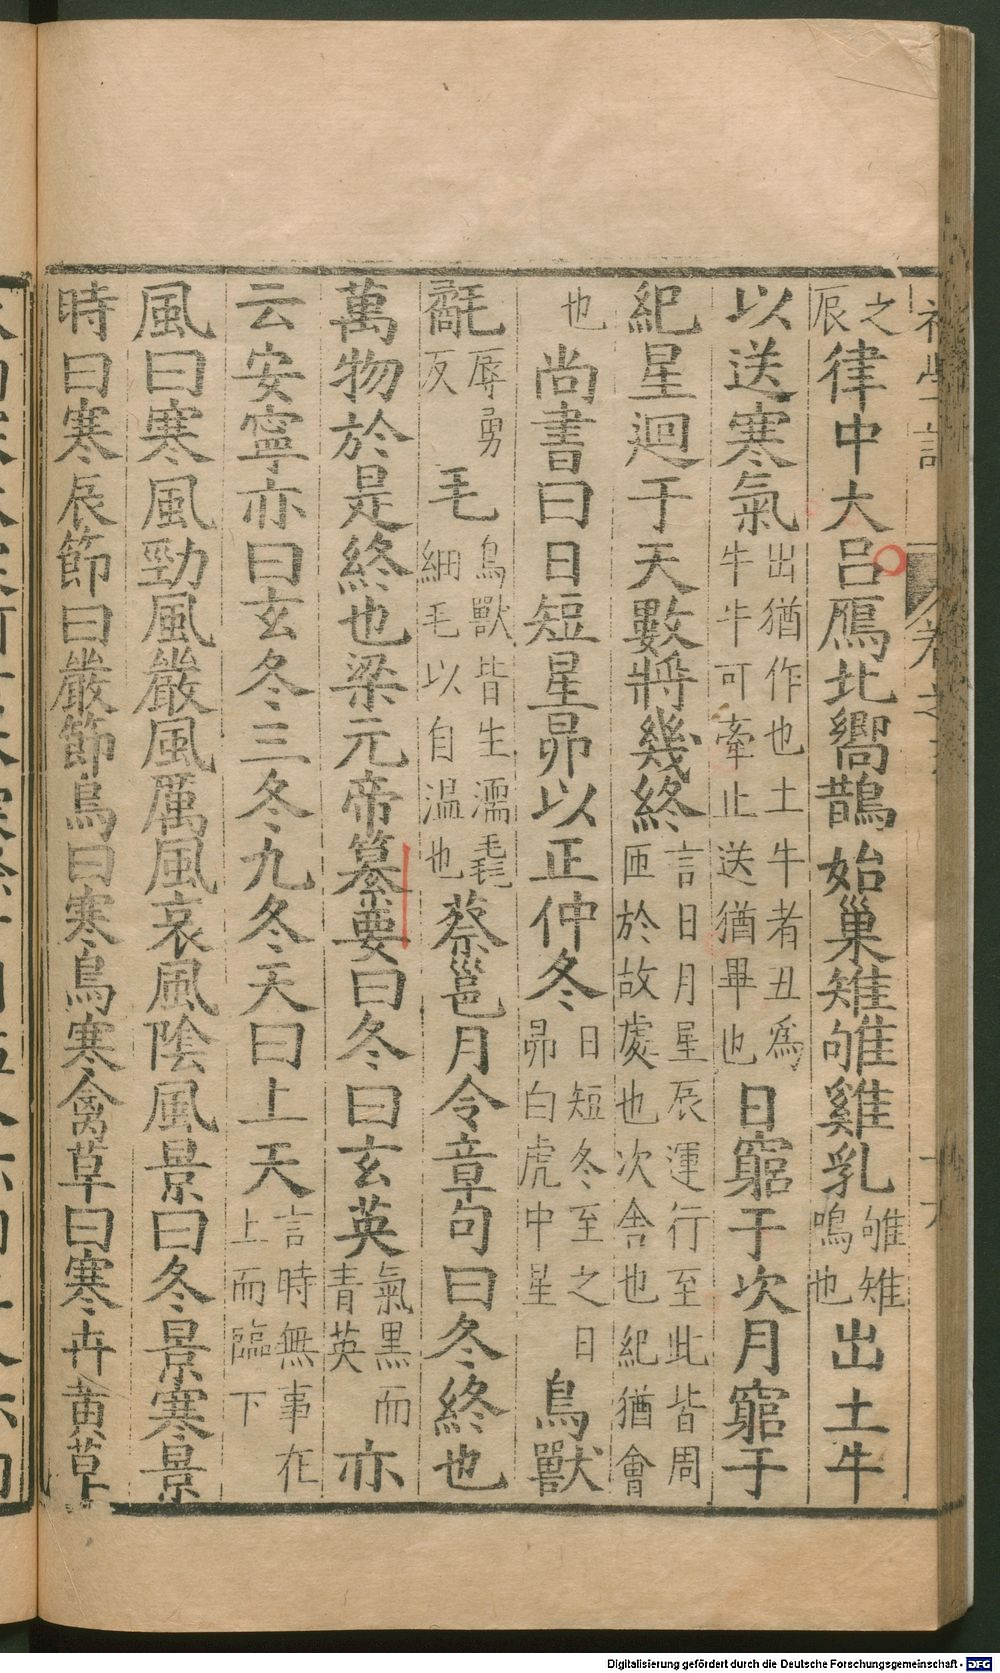 之辰律中大呂鴈北嚮鵲始巢雉雊雞乳雊雉鳴也出土牛
以送寒氣出猶作也土牛者丑爲牛牛可牽止送猶畢也日窮于次月窮于
紀星迴于天數將幾終言日月星辰運行至此皆周匝於故處也次舍也紀猶會
也尚書曰日短星昴以正仲冬日短冬至之日昴白虎中星鳥獸
氄辱勇反毛鳥獸皆生濡毳細毛以自温也蔡邕月令章句曰冬終也
萬物於是終也梁元帝纂要曰冬曰玄英氣黑而青英亦
云安寧亦曰玄冬三冬九冬天曰上天言時無事在上而臨下
風曰寒風勁風嚴風厲風哀風陰風景曰冬景寒景
時曰寒辰節曰嚴節鳥曰寒鳥寒禽草曰寒卉黄草
Digitalisierung gefördert durch die Deutsche Forschungsgemeinschaft - DFG